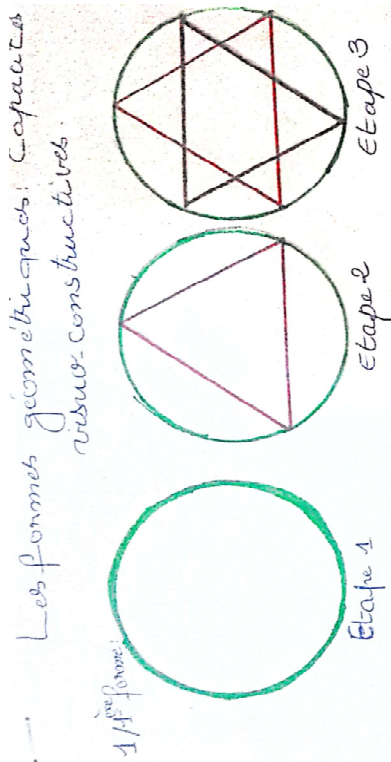 Les formes géométriques: Capacités
visuo-constructives.
1/1ère forme:
Etape 1
Etape 2
Etape 3